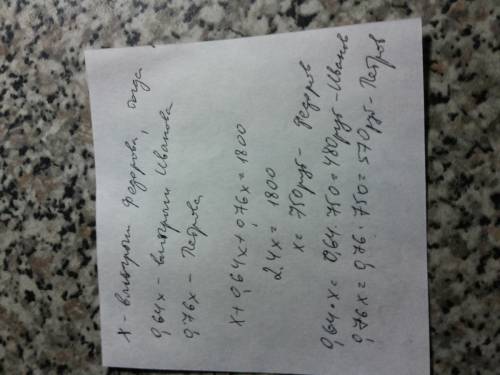 x - выигрыш Федорова, тогда
0,64x - выигрыш Иванова
0,76x - Петрова
x+0,64x+0,76x=1800
2,4x=1800
x=750руб - Федоров
0,64·x=0,64·750=480руб-Иванов
0,76x=0,76·750=570руб-Петров